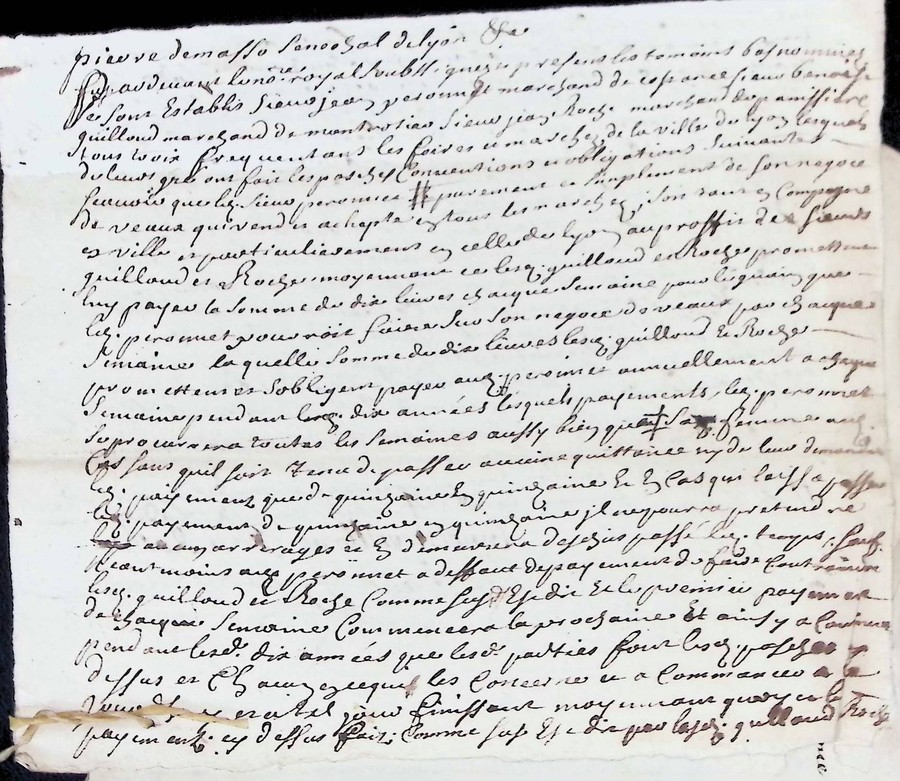 pierre demasso senechal de lyon &c
Pardevant le no.re royal soubsigné et presens les tesmoins bas nommés
se sont establis sieur jean peronnet marchand de cosance sieur benoist
guilloud marchand de montrotier sieur jean Roche marchand de
tous trois frequentant les foires et marchez de la ville de lyon lesquels
de leurs gré ont fait les pasches Conventions et obligations suivantes
scavoir que led. sieur peronnet # purement et simplement de son negoce
de veaux qui vend et achapte en tous les marchez, soit tant en Campagne
et ville et particulierement en celle de lyon au proffit des sieurs
guilloud et Roche moyennant ce lesd. guilloud et Roche promettent
luy payer la somme de dix livres chaque semaine pour le gain que
led. peronnet pourroit faire sur son negoce de veaux par chaque
semaine laquelle somme de dix livres lesd. guilloud et Roche
promettent et s'obligent payer aud. peronnet annuellement a chaque
semaine pendant dix années lesquels payements led. peronnet
se procurera toutes les semaines aussy bien que sa femme aud.
Cas sans quil soit tenu de passer aucune quittance ny de leur demander
led. paiement que de quinzaine en quinzaine et en Cas qui laissa passer
led. payement de quinzaine en quinzaine il ne pourra pretendre
aucun arrerages et en demeurera deschus passé led. temps, sauf
neantmoins aud. peronnet a deffaut de payement de faire Contraindre
lesd. guilloud et Roche Comme susd. Est dit et le premier payement
de chaque semaine Commencera la prochaine Et ainsy a Continuer
pendant lesd. dix années que lesd. parties font lesd. pasches
dessus et Chacun en ce qui les Concerne et a Commancer
jour finissant moyennant quoy
payement cy dessus fait Comme sus Est dit par lesd. guilloud et Roche